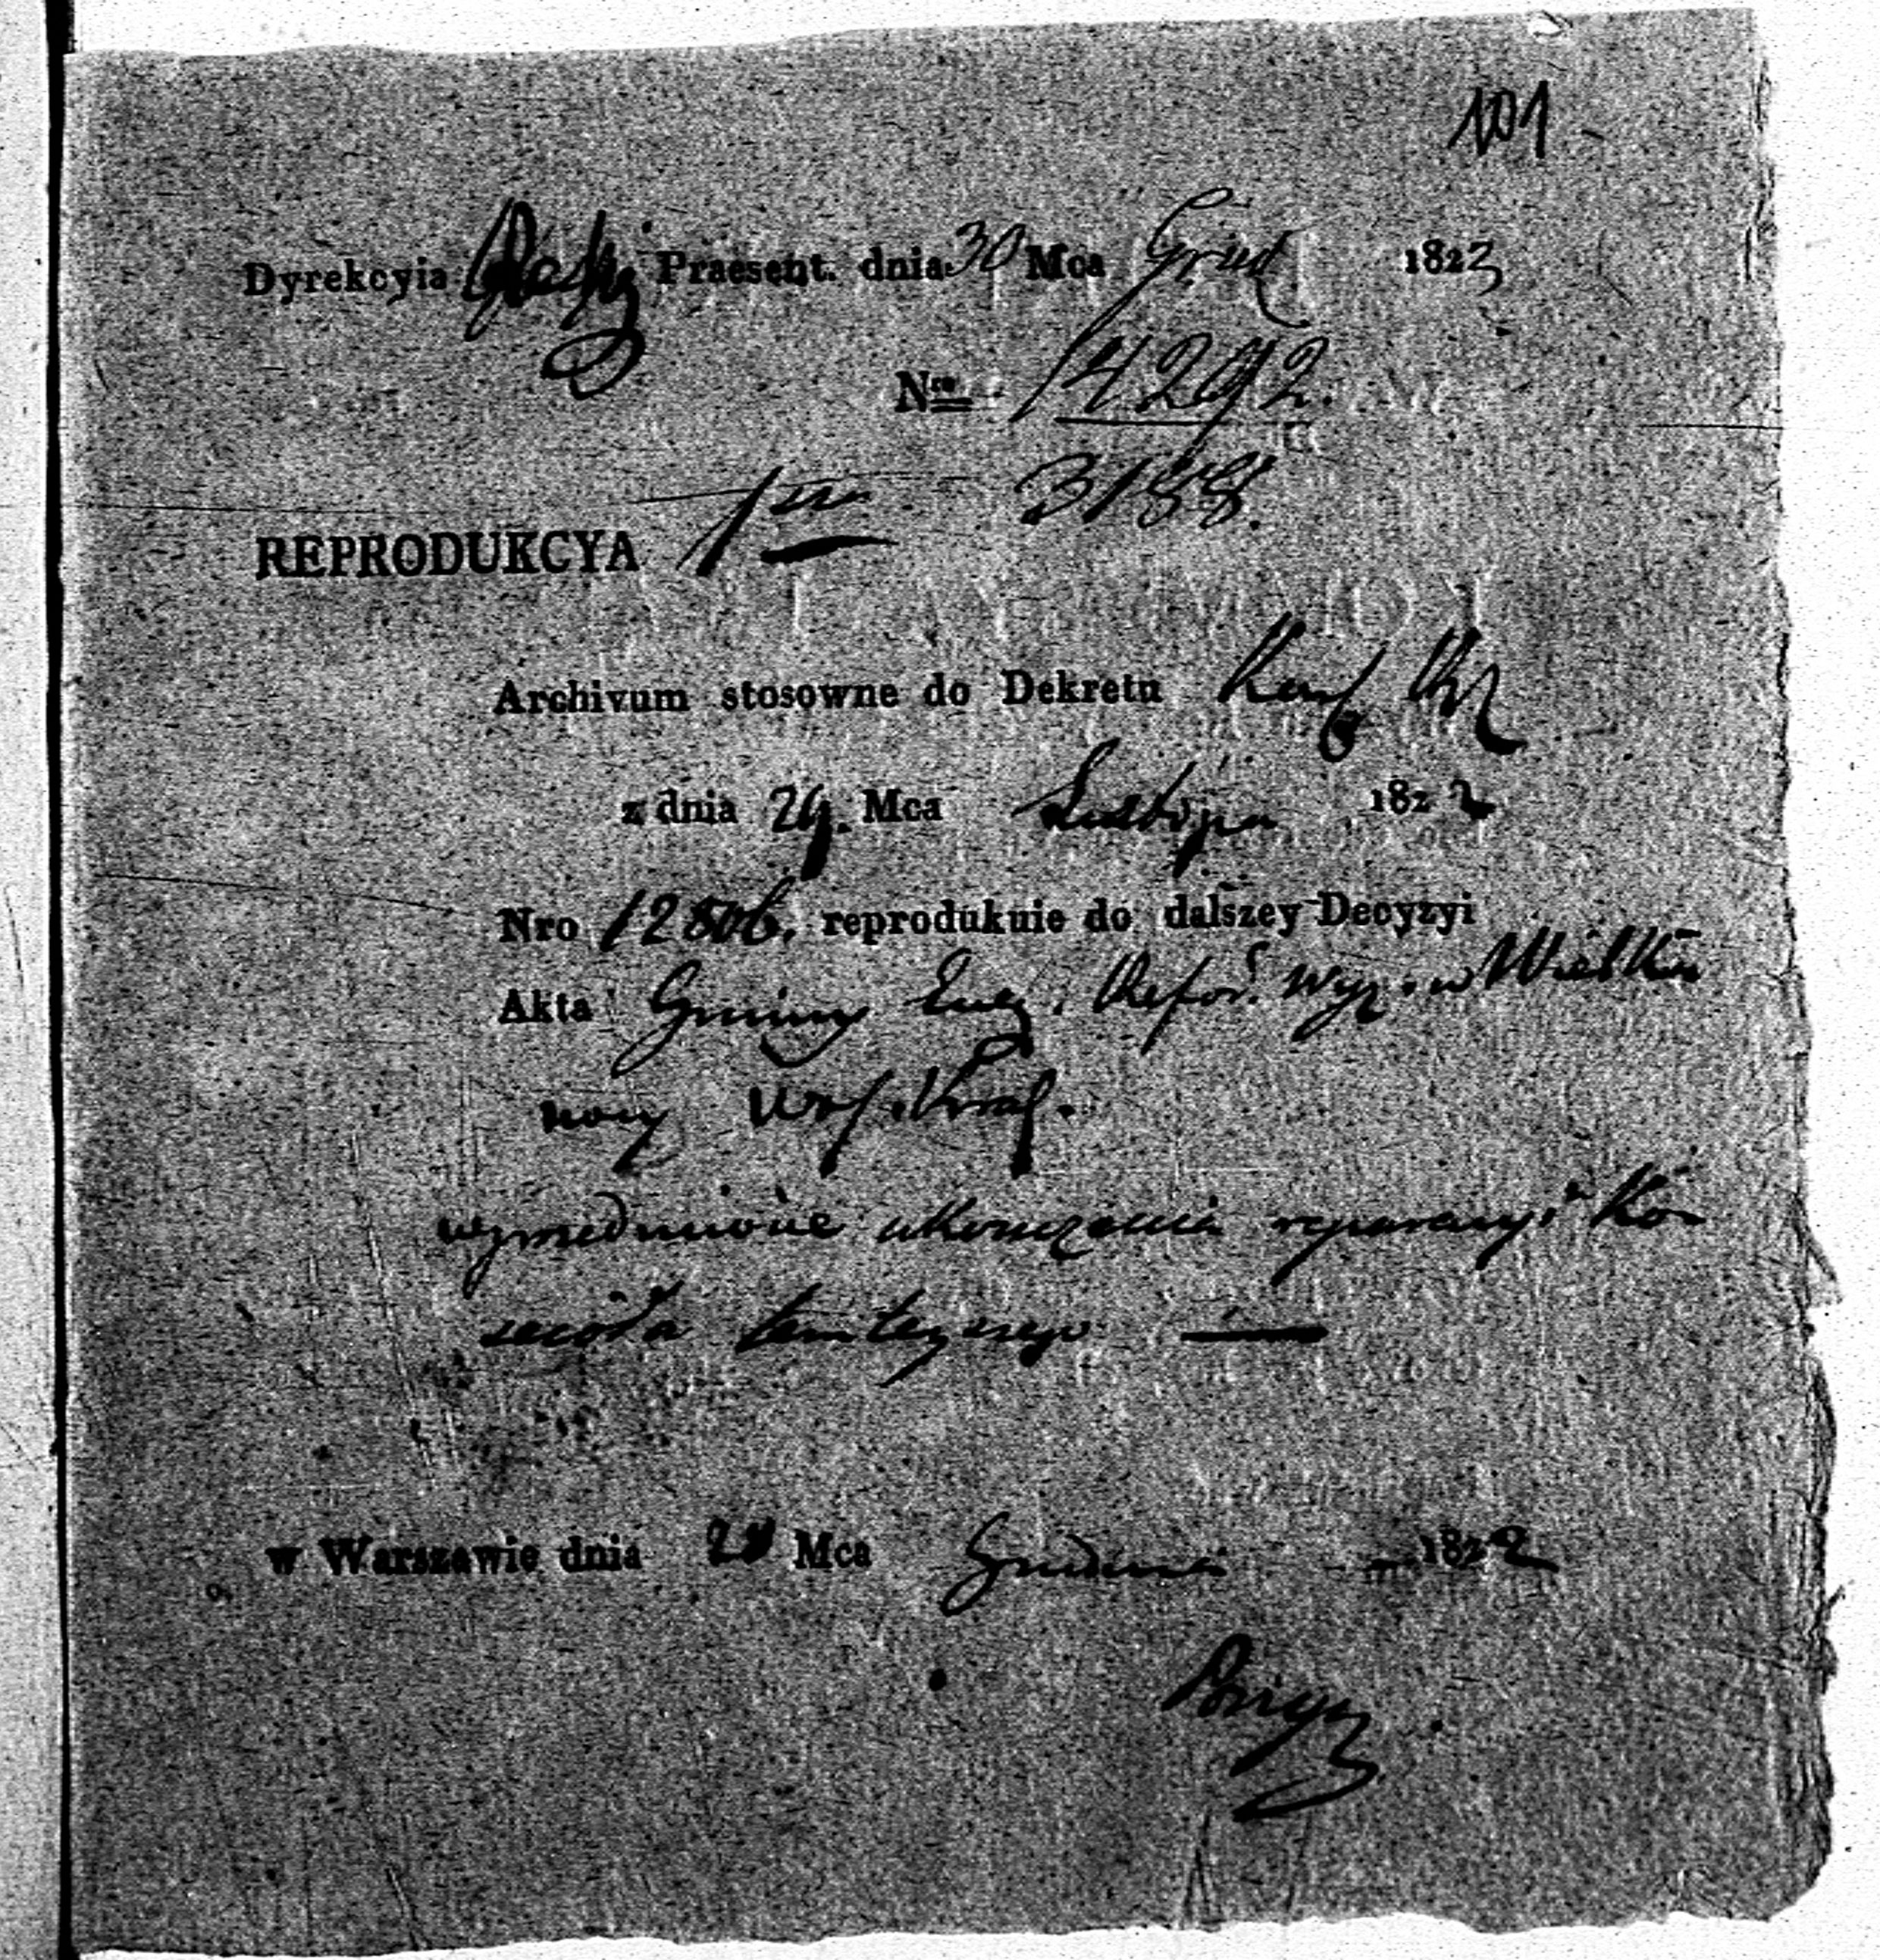 101
Dyrekcyia Praesent. dnia 30 Mca Grud 1822
Nro 14292.
3188.
REPRODUKCYA 1sza
Archivum stosowne do Dekretu
z dnia 29. Mca Listopa 1822
Nro 12806. reprodukuie do dalszey Decyzyi
Akta Gminy Ewg. Refor. Wyz. w Wielkiej
nocy Woj. Krak.
względnie ukończenia reparacyi Ko-
scioła tamteyszego —
w Warszawie dnia 28 Mca Grudnia 1822